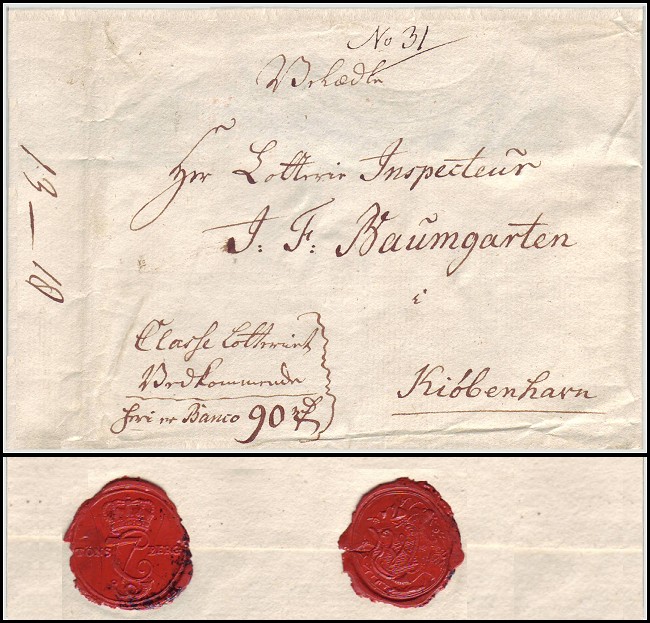 No 31
Herr Lotterie Inspecteur
J. F: Baumgarten
i
Kiöbenhavn
Classe Lotteriet
Vedkommende
heri er Banco 90
13 — 10
TÖNS BERG